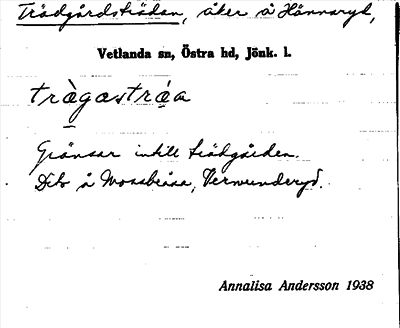 Trädgårdsträdan, åker å Hönnaryd,
Vetlanda sn, Östra hd, Jönk. l.
trägastráa
Gränsar intill trädgården.
Dito å Mossbråna, Vermunderyd.
Annalisa Andersson 1938